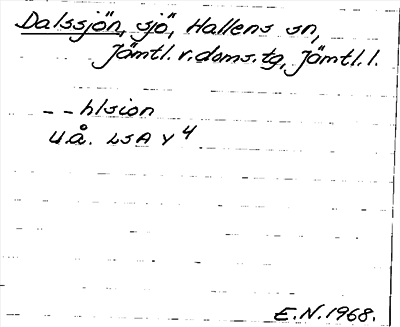 Dalssjön, sjö, Hallens sn,
Jämtl. v. doms.tg, Jämtl. l.
– – hlsion
U.å. LSA Y 4
E.N. 1968.